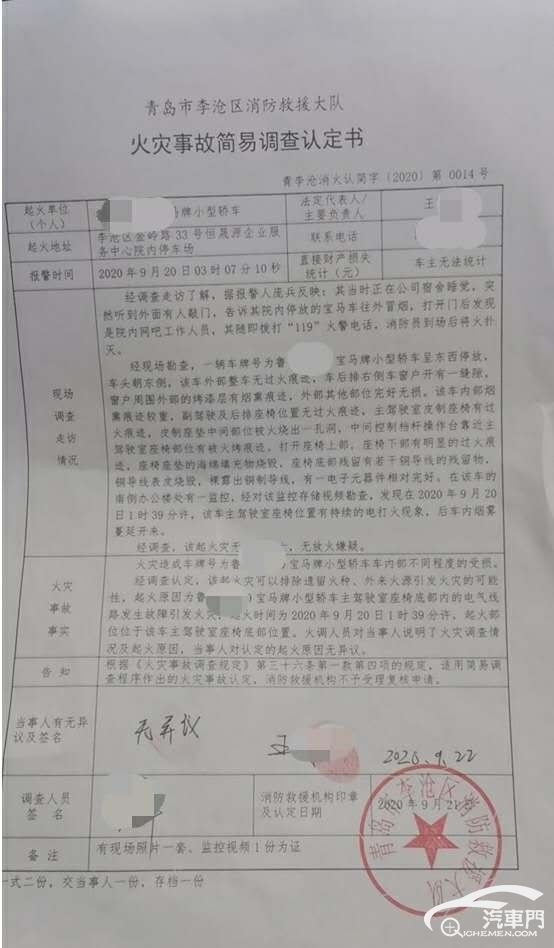 青岛市李沧区消防救援大队
火灾事故简易调查认定书
青李沧消火认简字〔2020〕第 0014 号
起火单位
(个人)
马牌小型轿车
法定代表人/
主要负责人
王
起火地址
李沧区金岭路 33 号恒晟源企业服
务中心院内停车场
联系电话
报警时间
2020 年 9 月 20 日 03 时 07 分 10 秒
直接财产损失
统计(元)
车主无法统计
现场
调查
走访
情况
经调查走访了解,据报警人庞兵反映:其当时正在公司宿舍睡觉,突
然听到外面有人敲门,告诉其院内停放的宝马车往外冒烟,打开门后发现
是院内网吧工作人员,其随即拨打“119”火警电话,消防员到场后将火扑
灭。
经现场勘查,一辆车牌号为鲁 宝马牌小型轿车呈东西停放,
车头朝东侧,该车外部整车无过火痕迹,车后排右侧车窗户开有一缝隙,
窗户周围外部的烤漆层有烟熏痕迹,外部其他部位完好无损。该车内部烟
熏痕迹较重,副驾驶及后排座椅位置无过火痕迹,主驾驶室皮制座椅有过
火痕迹,皮制座垫中间部位被火烧出一孔洞,中间控制档杆操作台靠近主
驾驶室座椅部位有被火烤痕迹。打开座椅上部,座椅下部有明显的过火痕
迹,座椅座垫的海绵填充物烧毁,座椅底部残留有若干铜导线的残留物,
铜导线表皮烧毁,裸露出铜制导线,有一电子元器件相对完好。在该车的
南侧办公楼处有一监控,经对该监控存储视频勘查,发现在 2020 年 9 月 20
日 1 时 39 分许,该车主驾驶室座椅位置有持续的电打火现象,后车内烟雾
蔓延开来。
经调查,该起火灾无 ,无放火嫌疑。
火灾
事故
事实
火灾造成车牌号为鲁 宝马牌小型轿车车内部不同程度的受损。
经调查认定,该起火灾可以排除遗留火种、外来火源引发火灾的可能
性,起火原因为鲁 0 宝马牌小型轿车主驾驶室座椅底部内的电气线
路发生故障引发火灾,起火时间为 2020 年 9 月 20 日 1 时 39 分许,起火部
位位于该车主驾驶室座椅底部位置。火调人员对当事人说明了火灾调查情
况及起火原因,当事人对认定的起火原因无异议。
告 知
根据《火灾事故调查规定》第三十六条第一款第四项的规定,适用简易调
查程序作出的火灾事故认定,消防救援机构不予受理复核申请。
当事人有无异
议及签名
无异议
王
2020.9.22
调查人员
签 名
消防救援机构印章
及认定日期
2020 年 9 月 21 日
青岛市李沧区消防救援大队
备 注
有现场照片一套、监控视频 1 份为证
一式二份,交当事人一份,存档一份
汽車門
QICHEMEN.COM